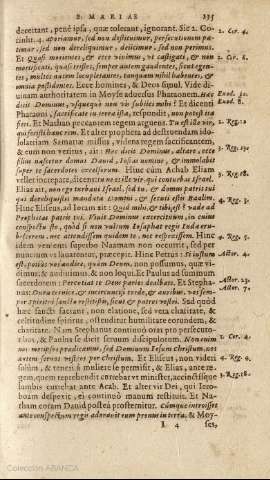 B. MARIAE 135
deerant, penè ipsa, quæ tolerant, ignorant. Sic 2. Co- 2. Cor. 4.
rint. 4. aporiamur, sed non destituimur, persecutionem pa-
timur, sed non derelinquimur, deiicimur, sed non perimus.
Et Quasi morientes, & ecce vivimus, vt castigati, & non 2. Cor. 6.
mortificati, quasi tristes, semper autem gaudentes, sicut egen-
tes, multos autem locupletantes, tanquam nihil habentes, &
omnia possidentes. Ecce homines, & Deos simul. Vide di-
uinam authoritatem in Moyse aduersus Pharaonem: Hæc Exod. 10.
dicit Dominus, vsquequò non vis subiici mihi? Et dicenti Exod. 8.
Pharaoni, sacrificate in terra ista, respondit, non potest ita
fieri. Et Nathan peccantem regem arguens: Tu es ille vir, 2. Reg. 12
qui fecisti hanc rem. Et alter propheta ad destruendam ido-
lolatriam Samariæ missus, videns regem sacrificantem,
& eum non veritus, ait: Hæc dicit Dominus, altare, ecce 3. Reg. 13.
filius nascetur domui Dauid, Iosias nomine, & immolabit
super te sacerdotes excelsorum. Hinc cùm Achab Eliam 3. Reg. 18
vellet increpare, dicens: tu ne es ille vir qui conturbas Israel,
Elias ait, non ego turbaui Israel, sed tu, & domus patris tui
qui dereliquistis mandata Domini, & secuti estis Baalim.
Hinc Eliseus, ad Ioram ait: Quid mihi, & tibi est? vade ad 4. Reg. 3.
Prophetas patris tui. Viuit Dominus exercituum, in cuius
conspectu sto, quòd si non vultum Iosaphat regis Iudæ eru-
bescerem, nec attendissem quidem te, nec respexissem. Hinc
idem venienti superbo Naaman non occurrit, sed per 4. Reg. 5.
nuncium vt lauaretur, præcepit. Hinc Petrus: Si iustum Actor. 4.
est, potius vos audire, quàm Deum, non possumus, quæ vi-
dimus, & audiuimus, & non loqui. Et Paulus ad summum
sacerdotem: Percutiat te Deus paries dealbate. Et Stepha- Actor. 23.
nus: Dura ceruice, & incircumcisi corde, & auribus, vos sem- Actor. 7.
per spiritui sancto restitistis, sicut & patres vestri. Sed quòd
hæc sancti faciant, non elatione, sed vera charitate, &
celsitudine spiritus, ostenditur humilitate eorundem, &
charitate. Nam Stephanus continuò orat pro persecuto-
ribus, & Paulus se dicit seruum discipulorum. Non enim 2. Cor. 4.
nos metipsos prædicamus, sed Dominum Iesum Christum, nos
autem seruos vestros per Christum. Et Eliseus, non videri 4. Reg. 4.
solùm, & teneri à muliere se permisit, & Elias, ante re-
gem, quem reprehendit currebat vt minister, accinctisque 3. Reg. 18.
lumbis currebat ante Acab. Et alter vir Dei, qui Iero-
boam despexit, ei continuò manum restituit. Et Na-
tham coram Dauid postea prosternitur. Cúmque introisset
ante conspectum regis adorauit eum pronus in terra, & Moy-
I 4 ses,
Colección ABANCA